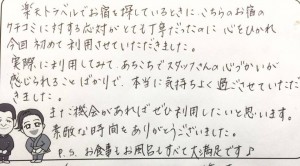 楽天トラベルでお宿を探しているときに、こちらのお宿の
クチコミに対する応対がとても丁寧だったのに心をひかれ
今回初めて利用させていただきました。
実際に利用してみて、あちこちでスタッフさんの心づかいが
感じられることばかりで、本当に気持ちよく過ごさせていただ
きました。
また機会があればぜひ利用したいと思います。
素敵な時間をありがとうございました。
P.S. お食事もお風呂もすべて大満足です♪